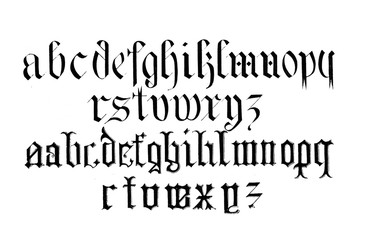 abcdefghiklmnopq
rstvwxyz
aabcdefghiklmnopq
rſtvwxyz